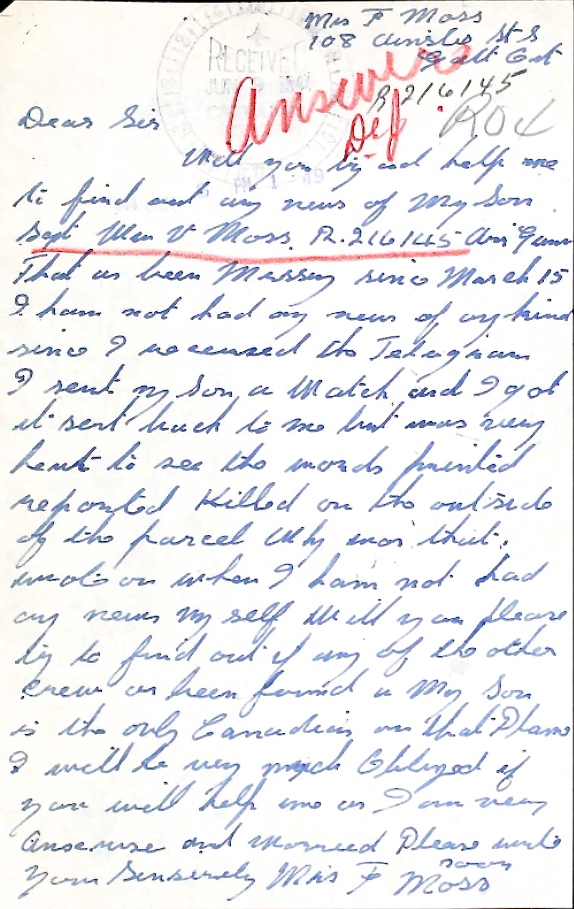 Mrs F Moss
108 Ainslie St S
Galt Ont
RECEIVED
Answered
R216145
Def
Dear Sir
Will you try and help me
to find out any news of My Son
Sgt Wm V Moss. R.216145 Air Gunn
That as been Missing since March 15
I ham not had any news of any kind
since I received the Telegram
I sent my Son a Watch and I got
it sent back to me but was very
hurt to see the words printed
reported Killed on the outside
of the parcel Why was that.
wrote on when I ham not had
any news my self Will you please
try to find out if any of the other
Crew as been found as My Son
is the only Canadian on that Plane
I will be very much Obliged if
you will help me as I am very
and Worried Please write
soon
Your Sinserely Mrs F Moss